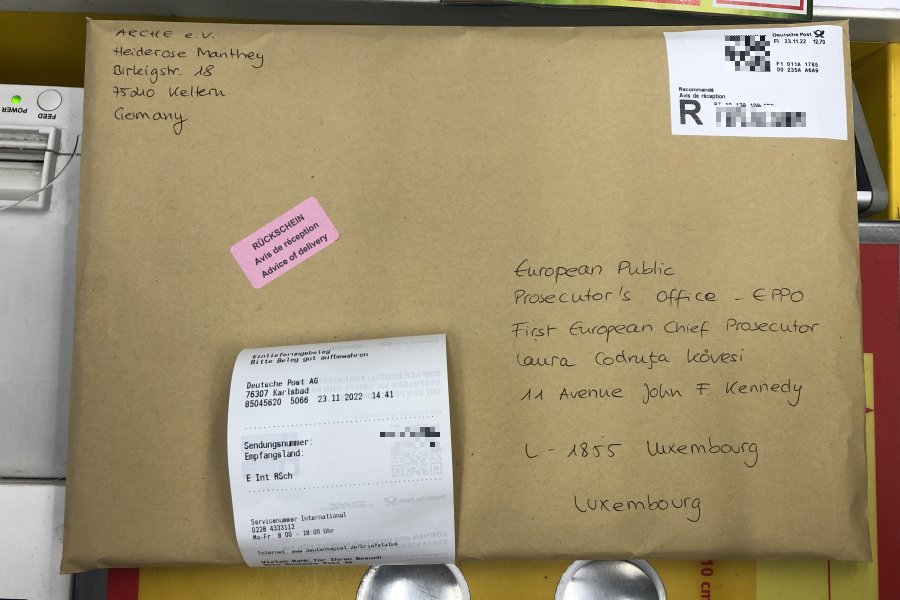 ARCHE e.V.
Heiderose Manthey
Birleigstr. 18
75210 Keltern
Germany
Deutsche Post
FI 23.11.22 12,70
F1 011A 1785
00 235A A6A9
Recommandé
Avis de réception
R
POWER
FEED
RÜCKSCHEIN
Avis de réception
Advice of delivery
European Public
Prosecutor's Office - EPPO
First European Chief Prosecutor
Laura Codruța Kövesi
11 Avenue John F. Kennedy
L - 1855 Luxembourg
Luxembourg
Einlieferungsbeleg
Bitte Beleg gut aufbewahren
Deutsche Post AG
76307 Karlsbad
85045620 5066 23.11.2022 14:41
Sendungsnummer:
Empfangsland:
E Int RSch
Servicenummer International
0228 4333112
Mo-Fr 8 00 - 18 00 Uhr
Internet www.deutschepost.de/briefstatus
Vielen Dank für Ihren Besuch.
10 cm